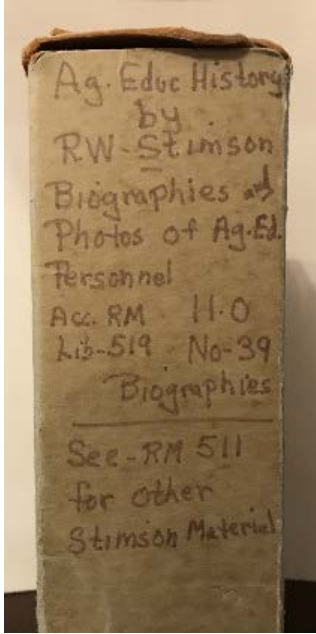 Ag. Educ History
by
RW-Stimson
Biographies and
Photos of Ag. Ed.
Personnel
Acc. RM 11.0
Lib-519 No-39
Biographies
See-RM 511
for other
Stimson Material